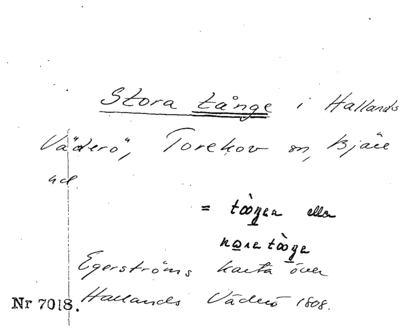 Stora tånge i Hallands
Väderö, Torekov sn, Bjäre
hd.
= tò̱o̱gen eller
no̱ra tò̱o̱ga
Egerströms karta över
Nr 7018. Hallands Väderö 1808.